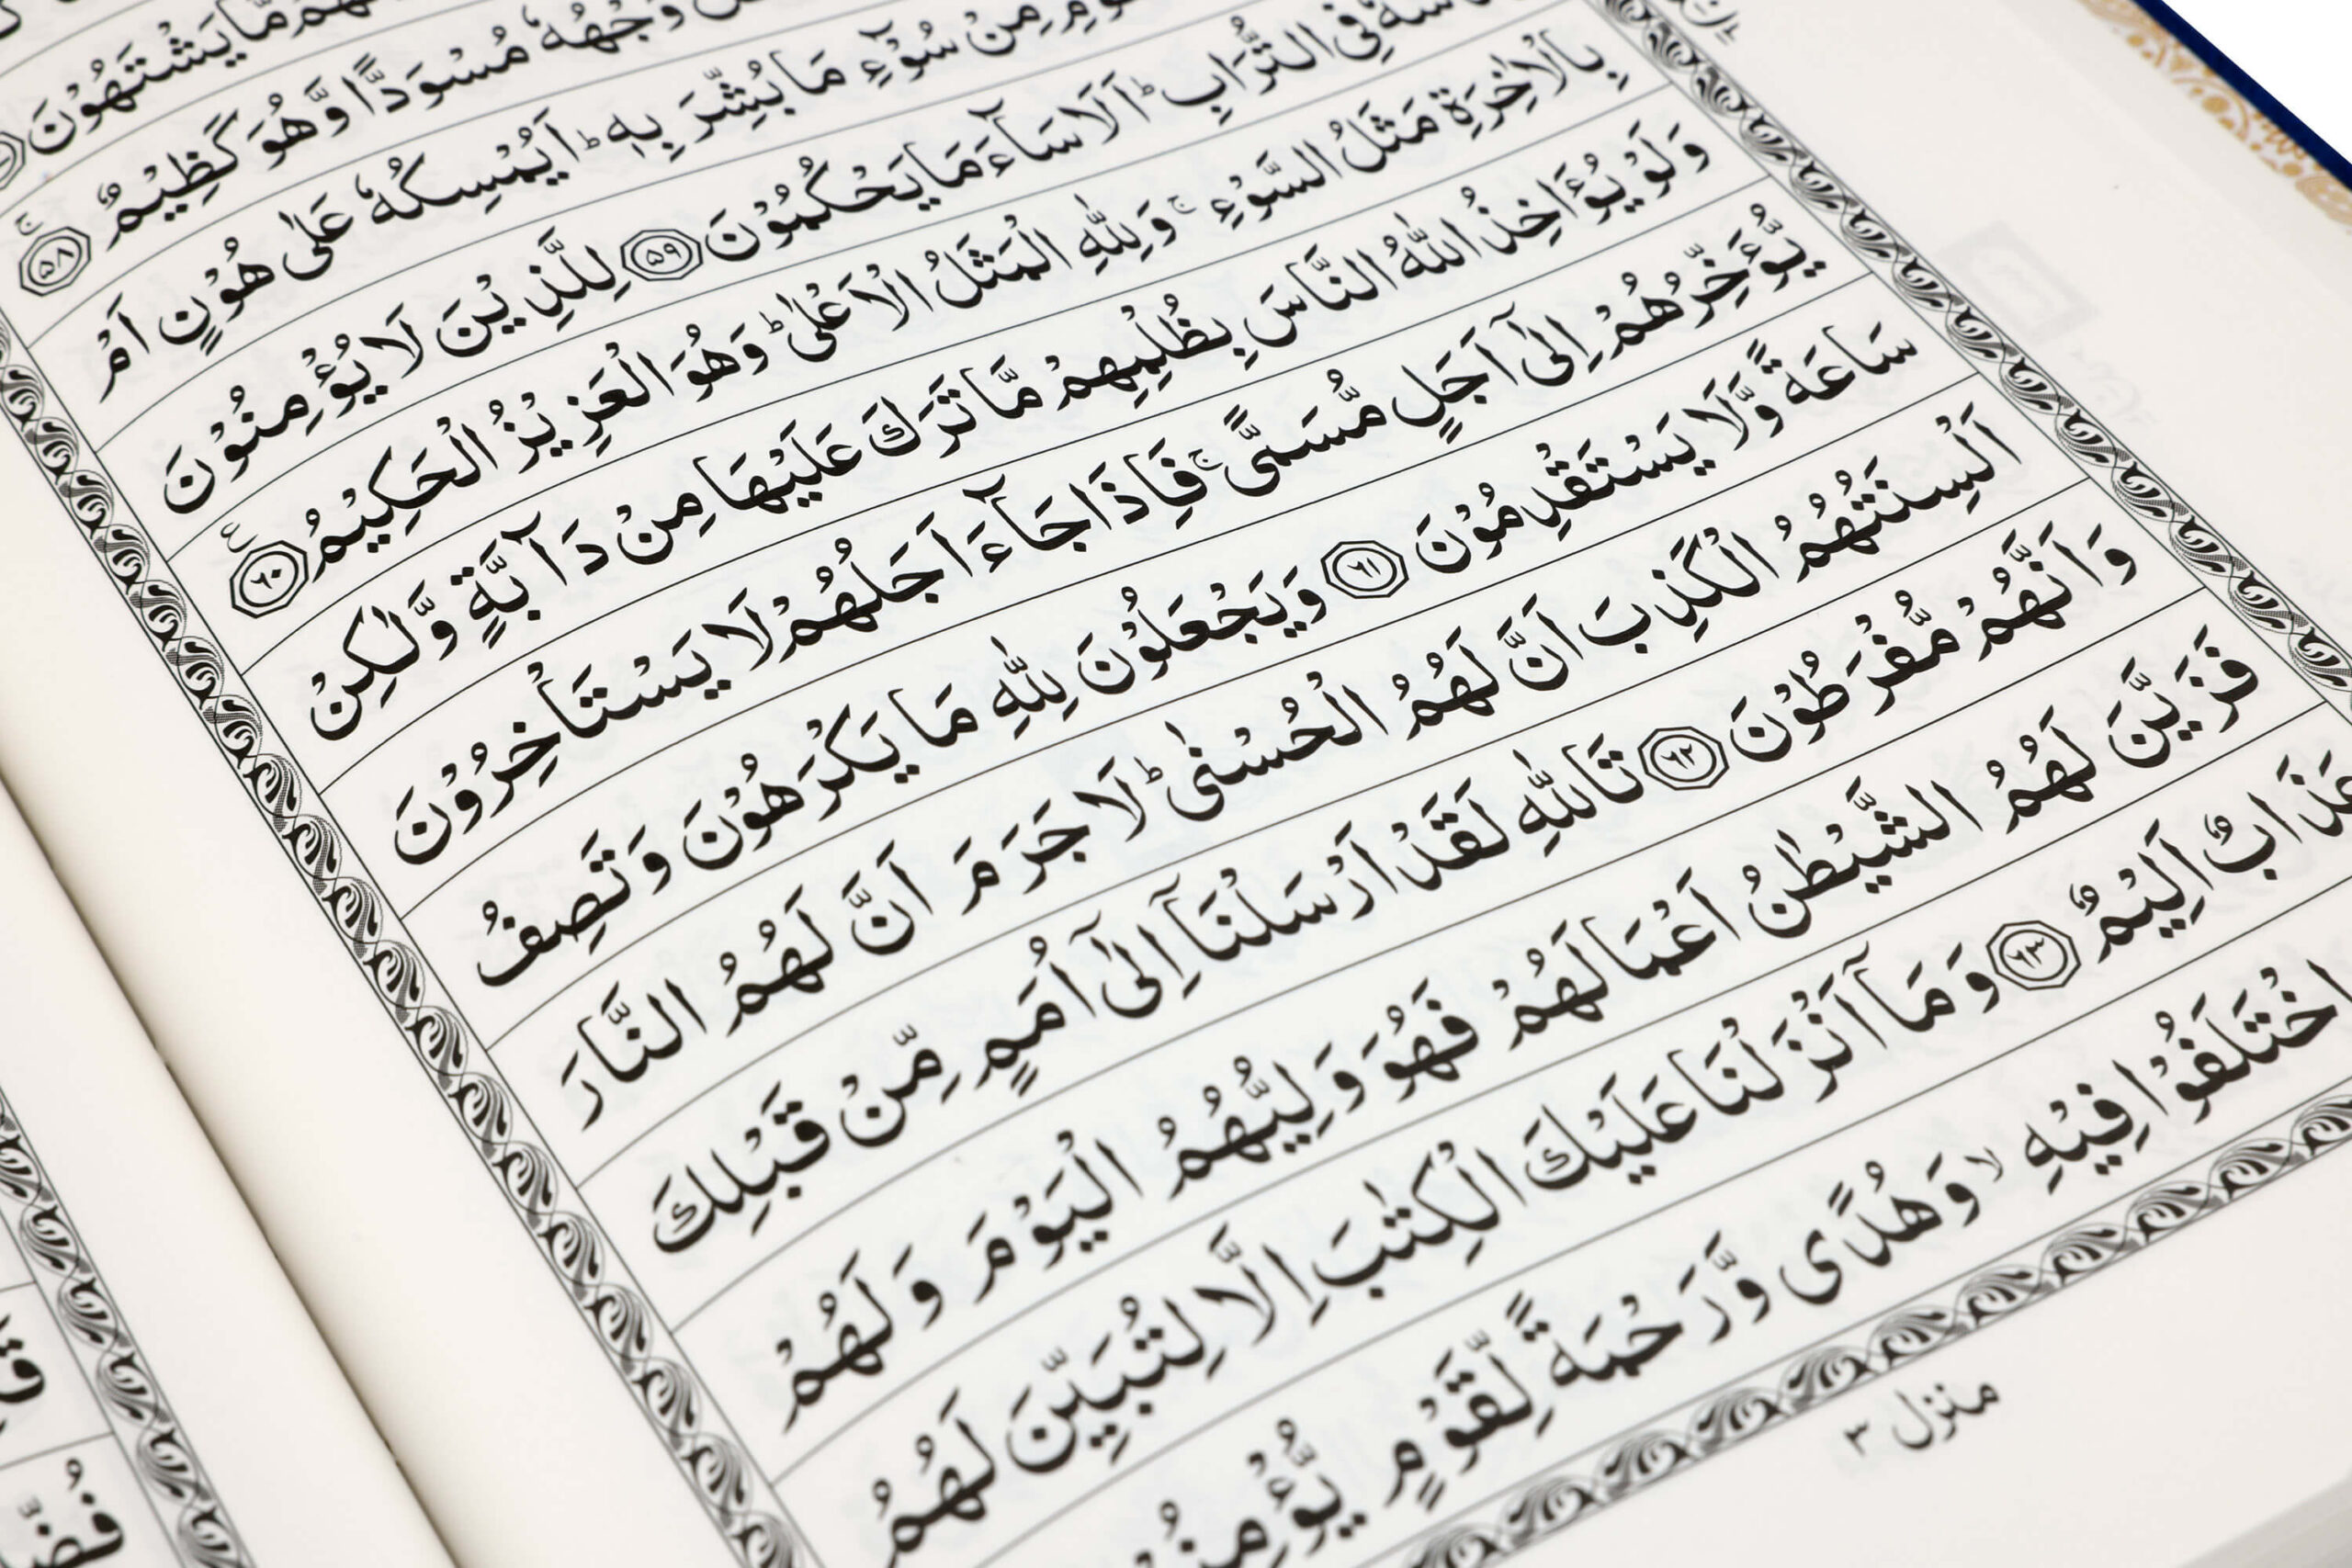 مَّا يَشْتَهُوْنَ
وَجْهُهٗ مُسْوَدًّا وَّهُوَ كَظِيْمٌ ۚ﴿۵۸﴾
مِنْ سُوْٓءِ مَا بُشِّرَ بِهٖ ؕ اَيُمْسِكُهٗ عَلٰى هُوْنٍ اَمْ
فِى التُّرَابِ ؕ اَلَا سَآءَ مَا يَحْكُمُوْنَ ﴿۵۹﴾ لِلَّذِيْنَ لَا يُؤْمِنُوْنَ
بِالْاٰخِرَةِ مَثَلُ السَّوْءِ ۚ وَلِلّٰهِ الْمَثَلُ الْاَعْلٰى ؕ وَهُوَ الْعَزِيْزُ الْحَكِيْمُ ﴿۶۰﴾
وَلَوْ يُؤَاخِذُ اللّٰهُ النَّاسَ بِظُلْمِهِمْ مَّا تَرَكَ عَلَيْهَا مِنْ دَآبَّةٍ وَّلٰكِنْ
يُّؤَخِّرُهُمْ اِلٰٓى اَجَلٍ مُّسَمًّى ۚ فَاِذَا جَآءَ اَجَلُهُمْ لَا يَسْتَاْخِرُوْنَ
سَاعَةً وَّلَا يَسْتَقْدِمُوْنَ ﴿۶۱﴾ وَيَجْعَلُوْنَ لِلّٰهِ مَا يَكْرَهُوْنَ وَتَصِفُ
اَلْسِنَتُهُمُ الْكَذِبَ اَنَّ لَهُمُ الْحُسْنٰى ؕ لَا جَرَمَ اَنَّ لَهُمُ النَّارَ
وَاَنَّهُمْ مُّفْرَطُوْنَ ﴿۶۲﴾ تَاللّٰهِ لَقَدْ اَرْسَلْنَآ اِلٰٓى اُمَمٍ مِّنْ قَبْلِكَ
فَزَيَّنَ لَهُمُ الشَّيْطٰنُ اَعْمَالَهُمْ فَهُوَ وَلِيُّهُمُ الْيَوْمَ وَلَهُمْ
عَذَابٌ اَلِيْمٌ ﴿۶۳﴾ وَمَآ اَنْزَلْنَا عَلَيْكَ الْكِتٰبَ اِلَّا لِتُبَيِّنَ لَهُمُ
اخْتَلَفُوْا فِيْهِ ۙ وَهُدًى وَّرَحْمَةً لِّقَوْمٍ
منزل ۳